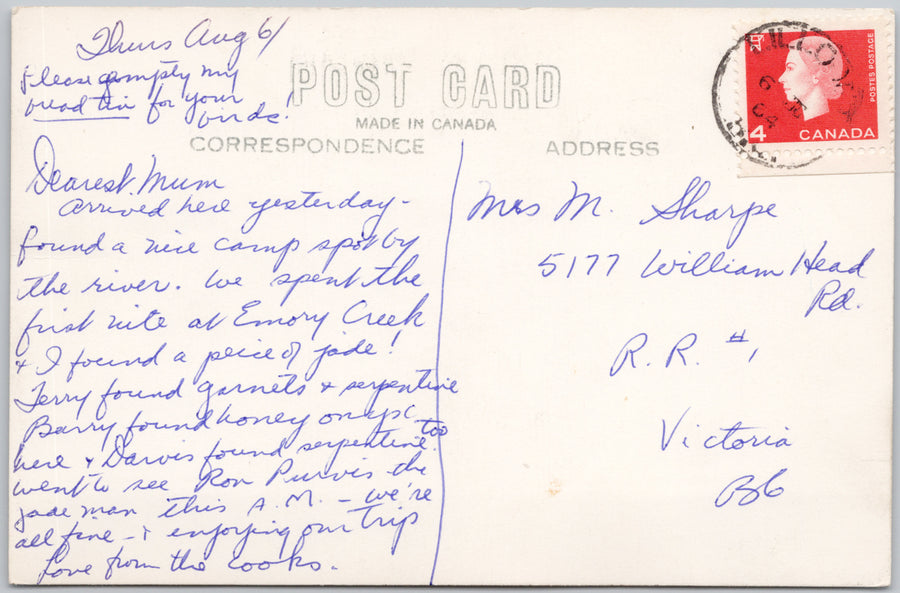 Thurs Aug 6/
Please empty my
bread tin for your
birds!
POST CARD
MADE IN CANADA
CORRESPONDENCE
ADDRESS
POSTES POSTAGE
4 CANADA
Dearest Mum
arrived here yesterday -
found a nice camp spot by
the river. We spent the
first nite at Emory Creek
& I found a peice of jade!
Terry found garnets & serpentine
Barry found honey onyx
here & Darvis found serpentine too
went to see Ron Purvis the
jade man this A.M. - we're
all fine - & enjoying our trip
Love from the Cooks.
Mrs M. Sharpe
5177 William Head
Rd.
R. R. #1
Victoria
BC